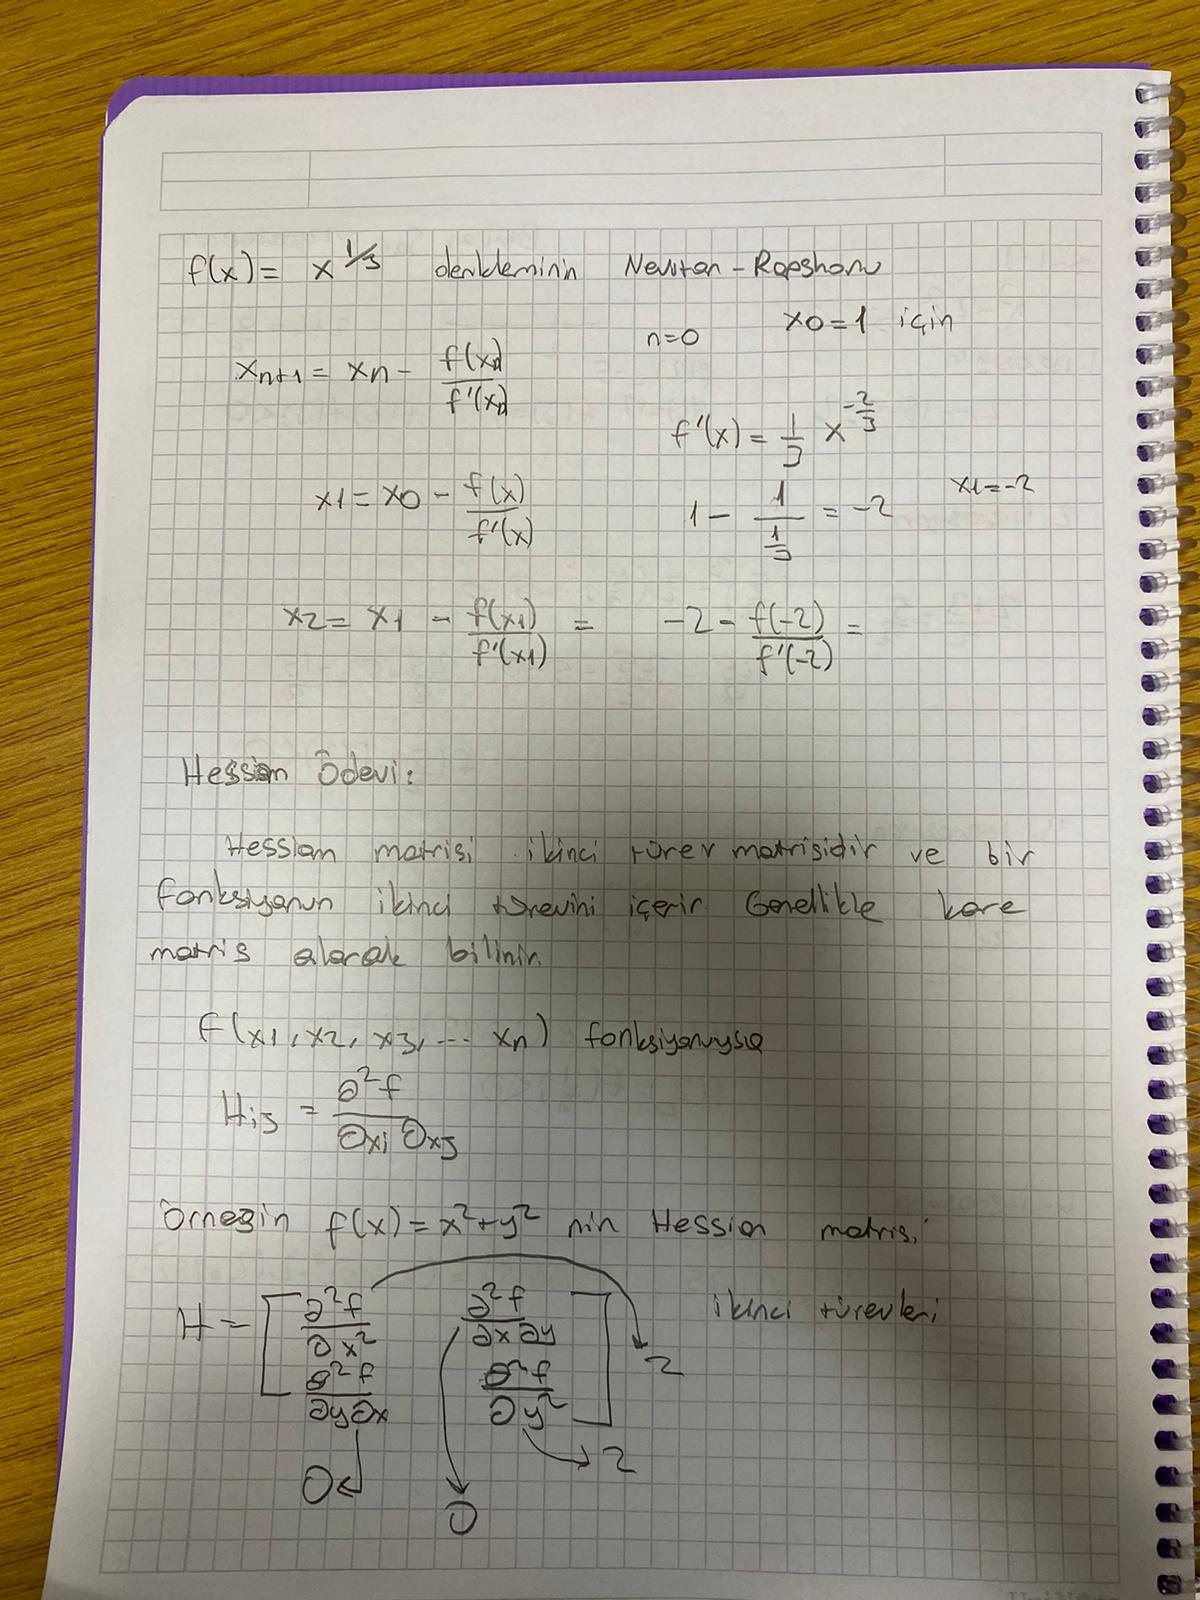 f(x) = x^1/3 denkleminin Newton - Rapshonu
n=0 x0=1 için
xn+1 = xn - f(xn)/f'(xn)
f'(x) = 1/3 x^-2/3
x1 = x0 - f(x)/f'(x) 1 - 1/(1/3) = -2 x1=-2
x2 = x1 - f(x1)/f'(x1) = -2 - f(-2)/f'(-2) =
Hessian Ödevi:
Hessian matrisi ikinci türev matrisidir ve bir
fonksiyonun ikinci türevini içerir. Genellikle kare
matris olarak bilinir.
f(x1, x2, x3, ... xn) fonksiyonuysa
Hij = ∂²f/∂xi ∂xj
Örneğin f(x) = x²+y² nin Hessian matrisi
H = [ ∂²f/∂x² ∂²f/∂x∂y ikinci türevleri
∂²f/∂y∂x ∂²f/∂y² ] 2
0 2
0